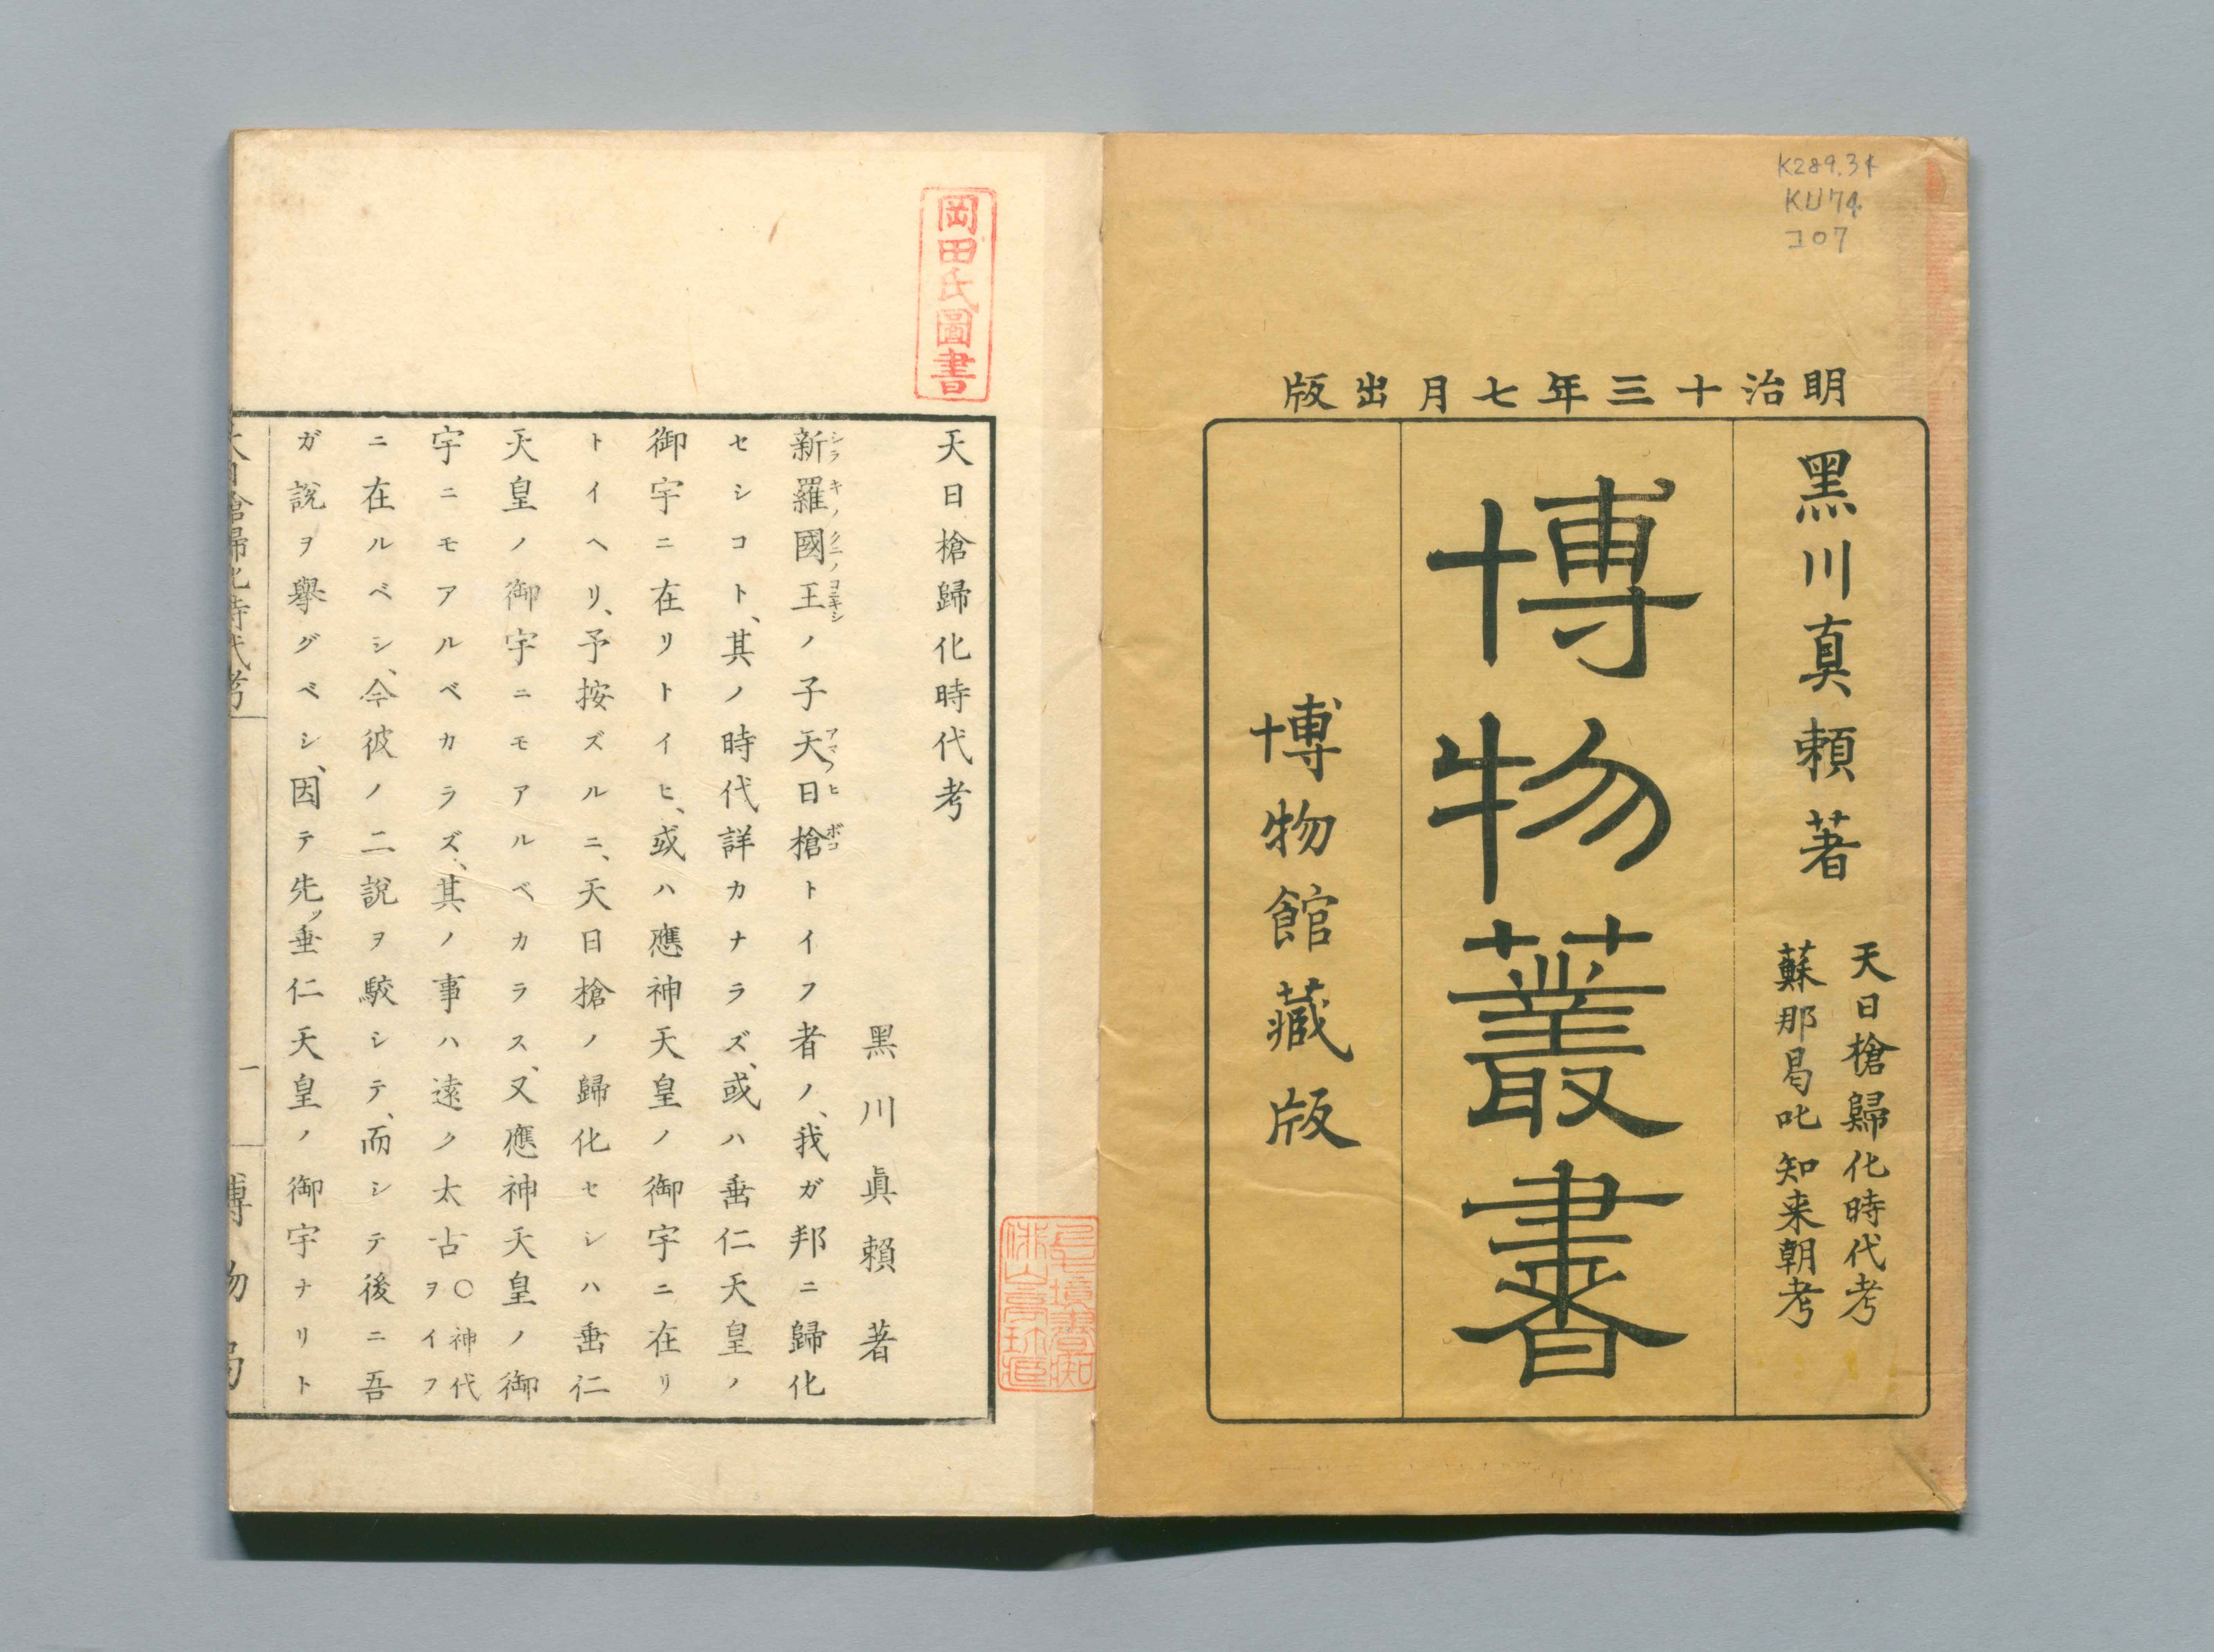 K289.3
KU74
コ07
明治十三年七月出版
黑川真頼著
天日槍歸化時代考
蘇那曷叱知来朝考
博物叢書
博物館藏版
岡田氏圖書
天日槍歸化時代考
黑川眞賴著
新羅國王ノ子天日槍トイフ者ノ、我ガ邦ニ歸化
シラキノクニノコニキシ アマノヒボコ
セシコト、其ノ時代詳カナラズ、或ハ垂仁天皇ノ
御宇ニ在リトイヒ、或ハ應神天皇ノ御宇ニ在リ
トイヘリ、予按ズルニ、天日槍ノ歸化セシハ垂仁
天皇ノ御宇ニモアルベカラス、又應神天皇ノ御
宇ニモアルベカラズ、其ノ事ハ遠ク太古○神代ヲイフ
ニ在ルベシ、今彼ノ二說ヲ駁シテ、而シテ後ニ吾
ガ說ヲ擧グベシ、因テ先ツ垂仁天皇ノ御宇ナリト
天日槍歸化時代考
一
博物局